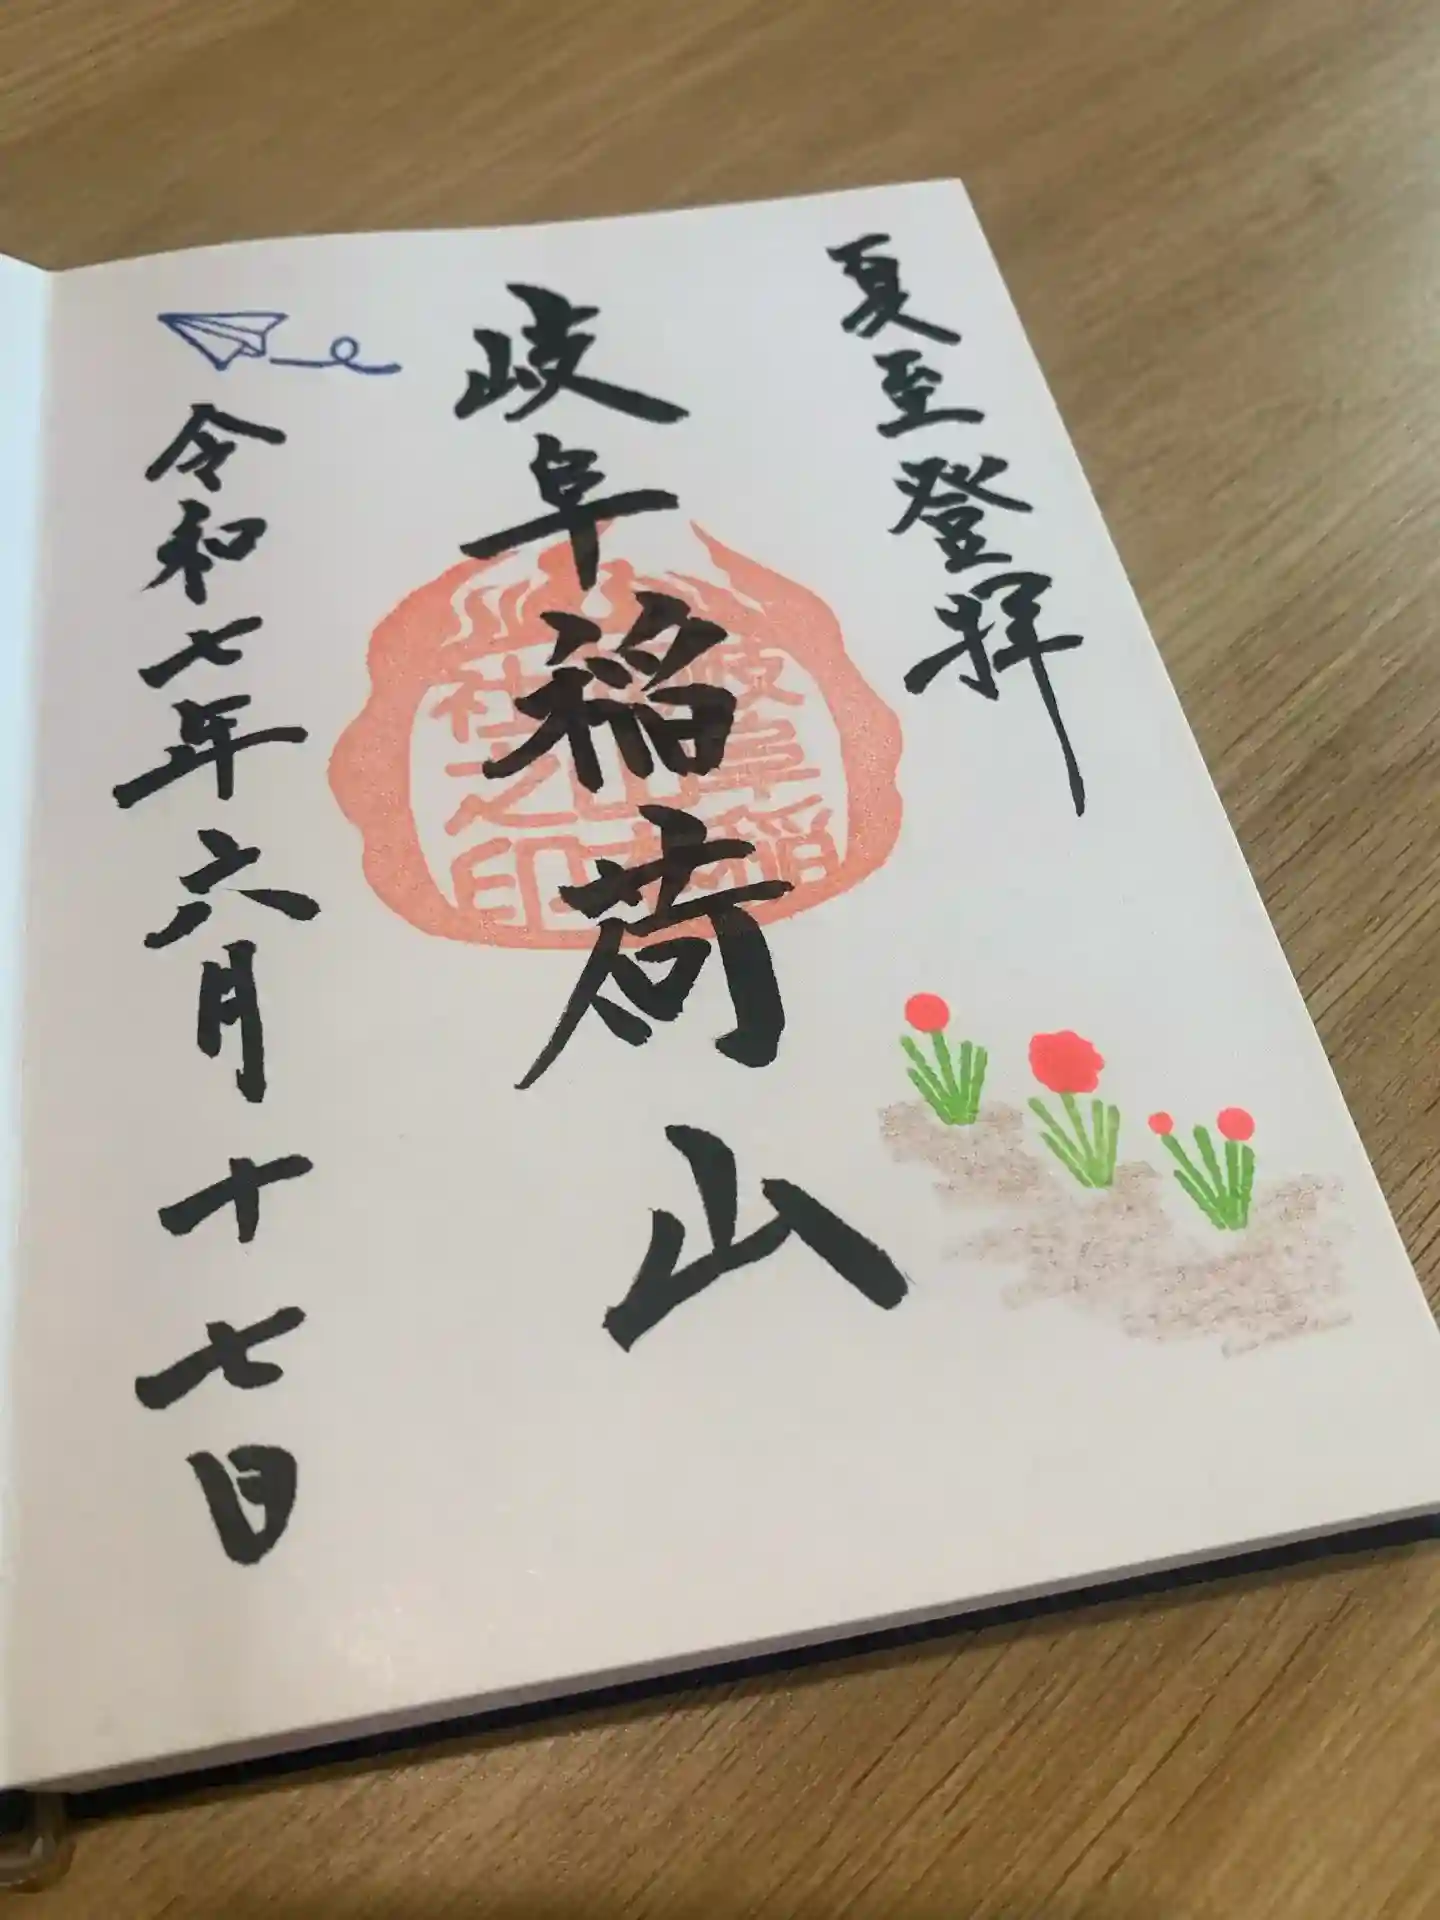 夏至登拝
岐阜稲荷山
岐阜稲
社之印
令和七年六月十七日